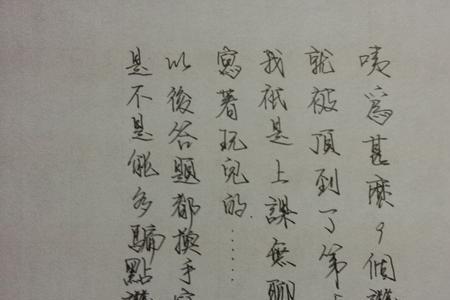 咦爲甚麼9個讚
就被頂到了第
我祇是上課無聊
寫著玩兒的......
以後答題都換手寫
是不是能多騙點讚